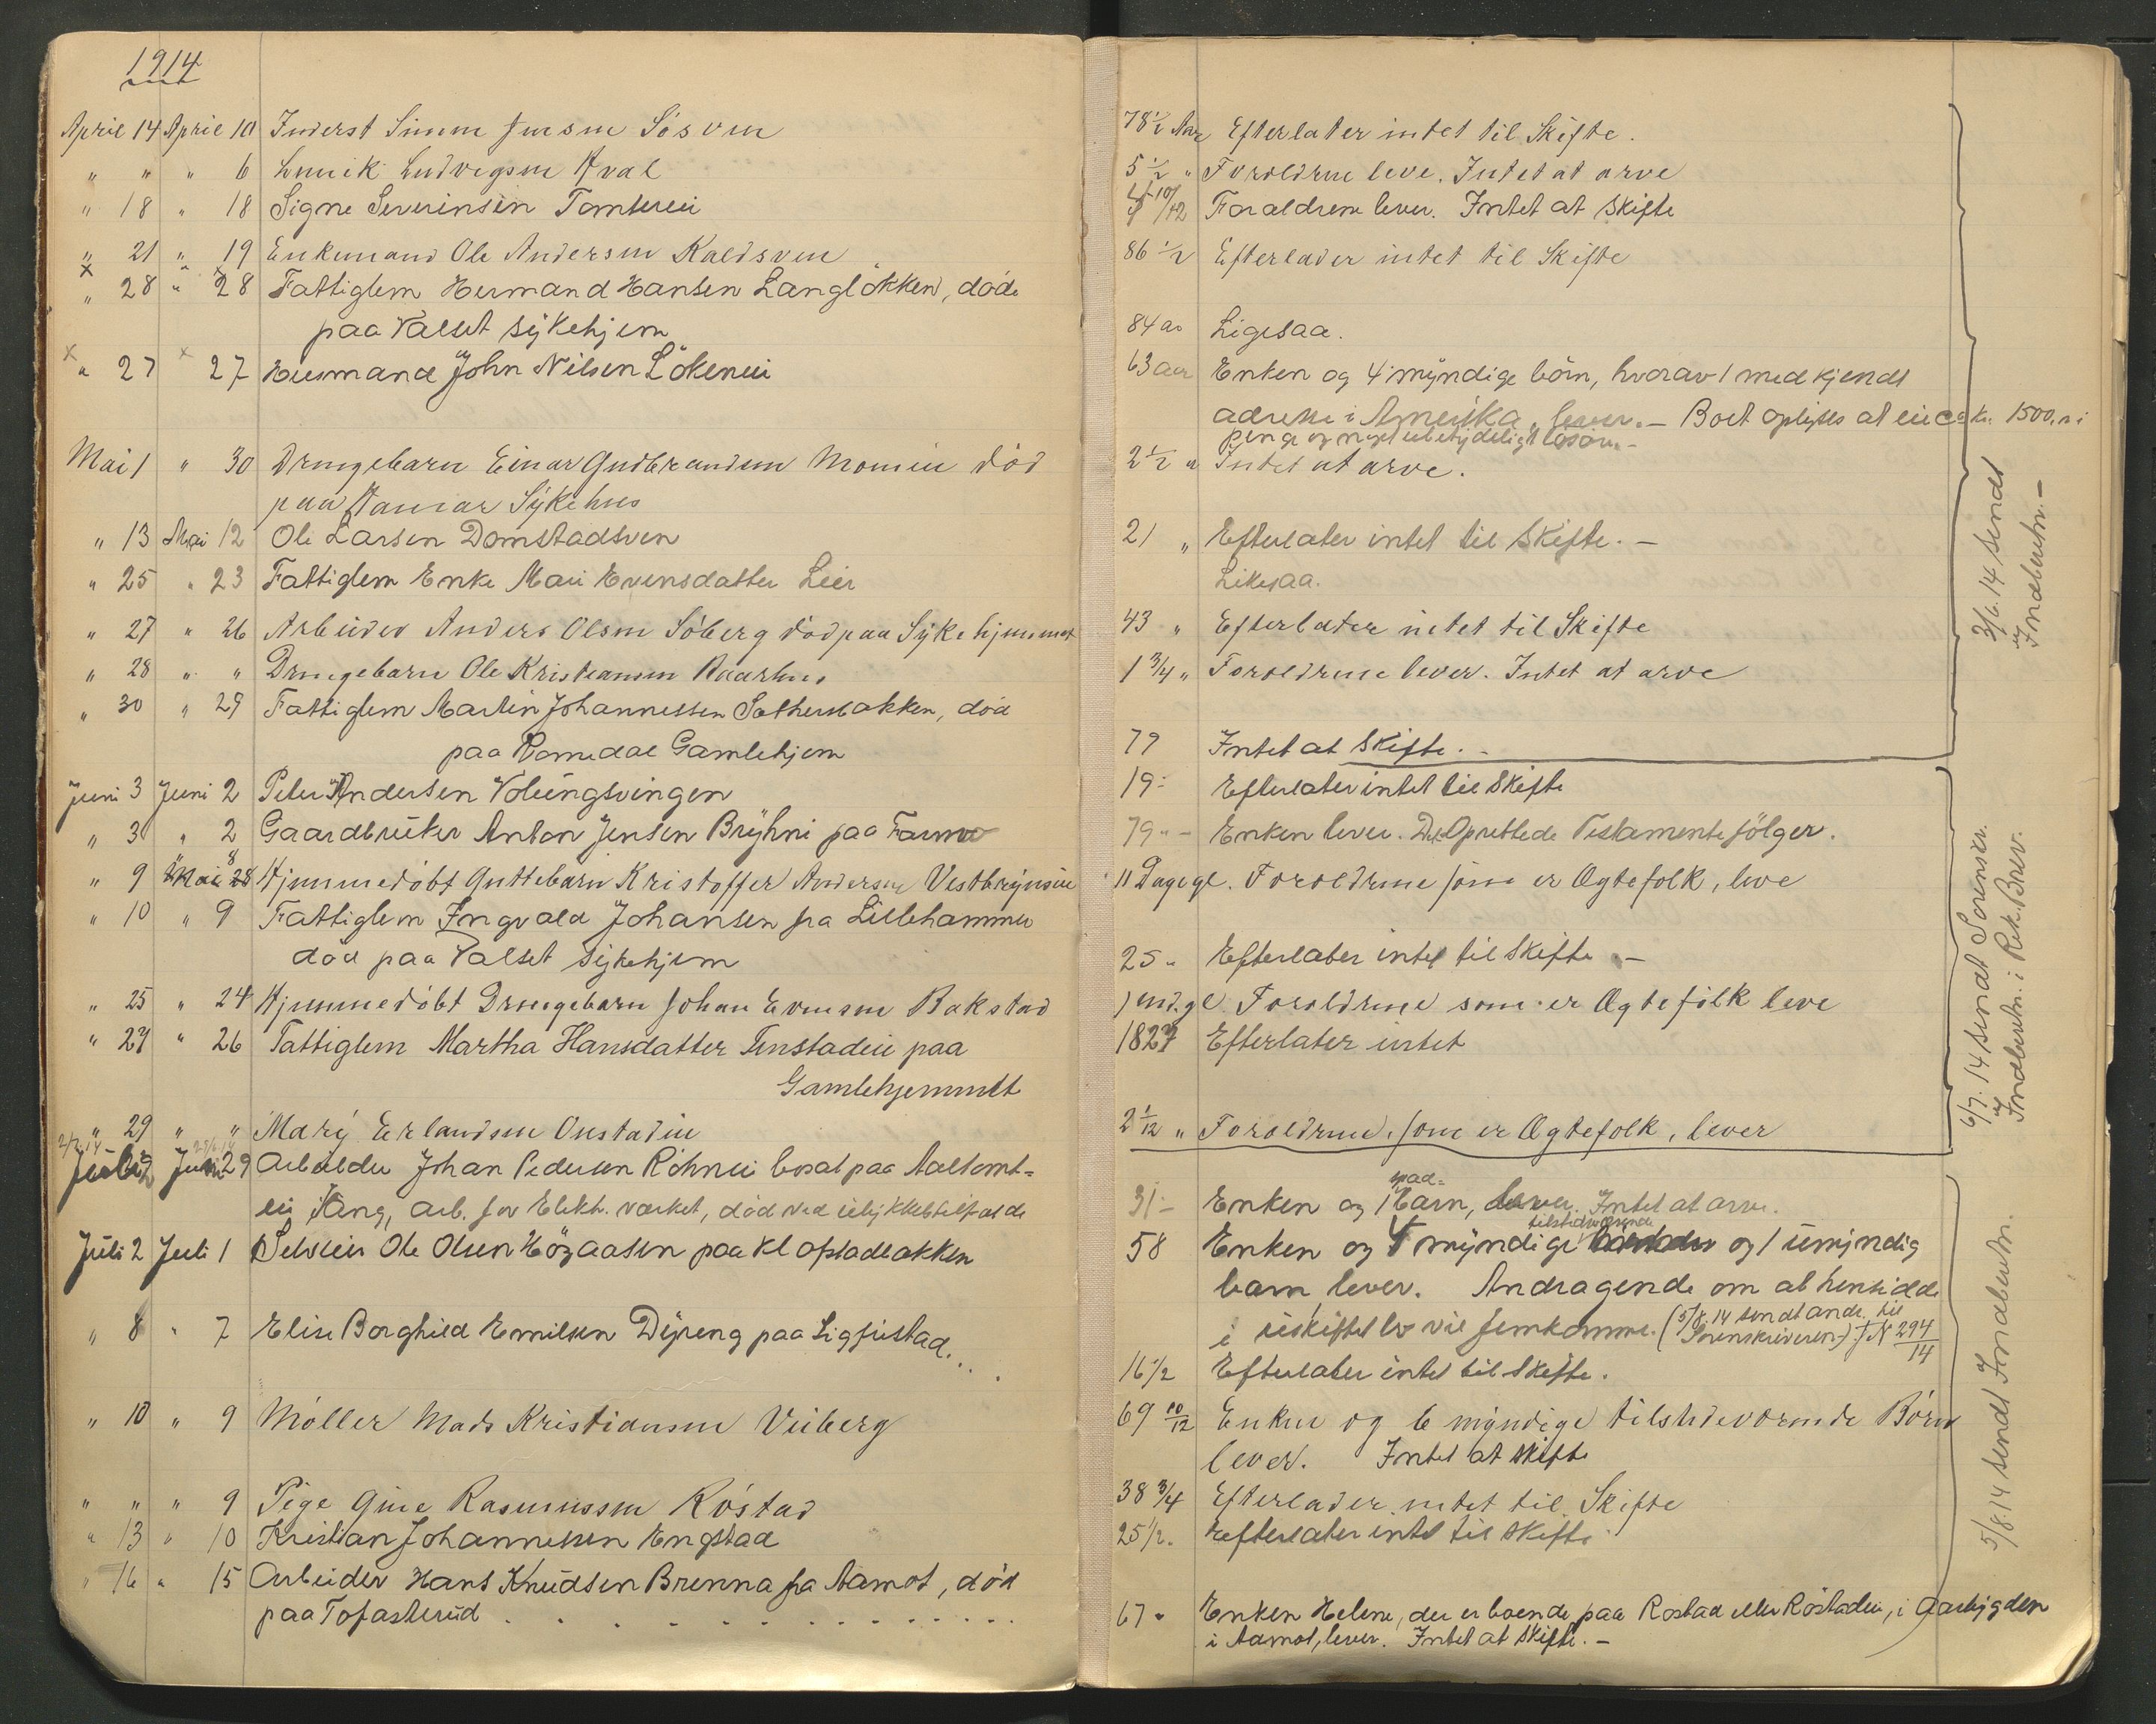 1914
April 14 April 10 Inderst Simen Jensen Sösven
" " " 6 Ludvigsen Hval
" 18 " 18 Signe Severinsen Tomterei
" 21 " 19 Enkemand Ole Andersen Kaldsven
" 28 " 28 Fattiglem Hermand Hansen Langlökken, döde
paa Valset sykehjem
" 27 27 Husmand John Nilsen Lökenei
Mai 1 " 30 Drengebarn Einar Gudbrandsen Momien död
paa Hamar Sykehus
" 13 Mai 12 Ole Larsen Domstadsven
" 25 " 23 Fattiglem Enke Mari Evensdatter Leir
" 27 " 26 Arbeider Anders Olsen Söberg död paa Sykehjemmet
" 28 " " Drengebarn Ole Kristiansen Aaarhus
" 30 " 29 Fattiglem Martin Johannessen Sætherbakken, död
paa Romedal Gamlehjem
Juni 3 Juni 2 Peter Andersen Volungsvingen
" 3 " 2 Gaardbruker Anton Jensen Bryhni paa Farmo
" 9 Mai 28 8 Hjemmedöbt Guttebarn Kristoffer Andersen Vestbrynsei
" 10 " 9 Fattiglem Ingvald Johansen fra Lillehammer
död paa Valset sykehjem
" 25 " 24 Hjemmedöbt Drengebarn Johan Evensen Bakstad
" 27 " 26 Fattiglem Martha Hansdatter Finstadeie paa
Gamlehjemmet
" 29 " " Mary Erlandsen Onstadeie
2/7 14 Juli 2 29/6 14 Juni 29 Arbeider Johan Pedersen Röhnei bosat paa Aaltomt-
ei i Vang, arb. for Elektr. verket, död ved ulykkestilfælde
Juli 2 Juli 1 Selveier Ole Olsen Högaasen paa Klopstadbakken
" 8 " 7 Elise Borghild Emilsen Dyreng paa Ligjustad...
" 10 " 9 Möller Mads Kristiansen Viberg
" " " 9 Pige Gine Rasmussen Röstad
" 13 " 10 Kristian Johannessen Engstad
" 16 " 15 Arbeider Hans Knudsen Brenna fra Aamot, död
paa Tofasterud . . . . . . . . .
78 1/2 Aar Efterlater intet til Skifte.
5 1/2 " Foreldrene leve. Intet at arve
4 10/12 Forældrene lever. Intet at skifte
86 1/2 Efterlader intet til Skifte
84 aar Ligesaa.
63 aar Enken og 4 myndige börn, hvorav 1 med kjendt
adresse i Amerika, lever. - Boet oplyses at eie ca kr. 1500,- i
penge og meget ubetydeligt lösöre.-
2 1/2 " Intet at arve.
21 " Efterlater intet til skifte. -
Likesaa.
43 " Efterlater intet til Skifte
1 3/4 " Foreldrene lever. Intet at arve
79 Intet at skifte. -
3/6. 14 sendt
Indberetn. -
19 - Efterlater intet til skifte
79 " - Enken lever. Det Oprettede Testamente fölger.
11 Dage gl. Foreldrene som er Ægtefolk, leve
25 " Efterlater intet til skifte. -
1 md. gl. Foreldrene som er Ægtefolk leve
1827 Efterlater intet
2 1/12 " Foreldrene, som er Ægtefolk, lever
6/7. 14 sendt Sorenskr.
Indberetn. i Rek. Brev.
31 - Enken og 1 spad- barn, lever. Intet at arve.
58 Enken og 4 myndige tilstedværende og 1 umyndig
barn, lever. Andragende om at hensidde
i uskiftet bo vil fremkomme. (5/8. 14 sendt andr. til
Sorenskriveren.) JN 294/14
16 1/2 Efterlater intet til skifte.
69 10/12 Enken og 6 myndige tilstedeværende Börn
lever. Intet at skifte
38 3/4 Efterlader intet til Skifte
25 1/2. Efterlater intet til skifte
67 " Enken Helene, der er boende paa Rostad eller Röstadeie, i Aasbygden
i Aamot, lever. Intet at skifte. -
5/8. 14 sendt Indberetn.